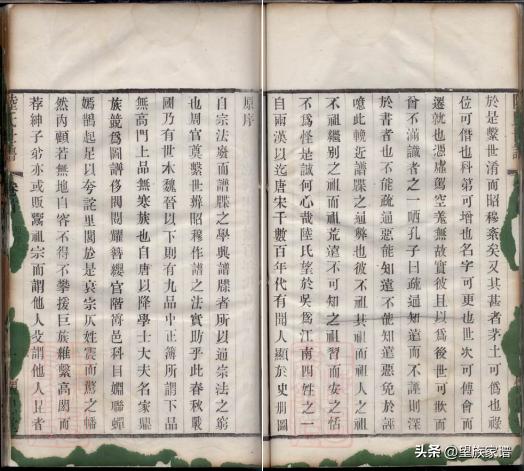 原序
自宗法廢而譜牒之學興譜牒者所以通宗法之窮
也周官奠繫世辨昭穆作譜之法實助乎此春秋戰
國乃有世本魏晉以下則有九品中正簿所謂下品
無高門上品無寒族也自唐以降學士大夫名家鼎
族競爲圖譜侈閥閱耀簪纓官階爵邑科目婣聯蟬
嫣鵲起足以夸詫里閭於是衰宗仄姓震而驚之幡
然內顧若無地自容不得不攀援巨族維繫高閎而
荐紳子弟亦或販鬻祖宗而謂他人父謂他人昆者
於是繫世淆而昭穆紊矣又其甚者茅土可僞也祿
位可僭也科第可增也名字可更也世次可傅會而
遷就也憑虛駕空羌無故實彼且以爲後世可欺而
曾不滿識者之一哂孔子曰疏通知遠而不誣則深
於書者也不能疏通惡能知遠不能知遠惡免於誣
噫此輓近譜牒之通弊也彼不祖其祖而祖人之祖
不祖繼別之祖而祖荒遠不可知之祖習而安之恬
不爲怪是誠何心哉陸氏望於吳爲江南四姓之一
自兩漢以迄唐宋千數百年代有聞人顯於史册圖
头条 @望族家谱